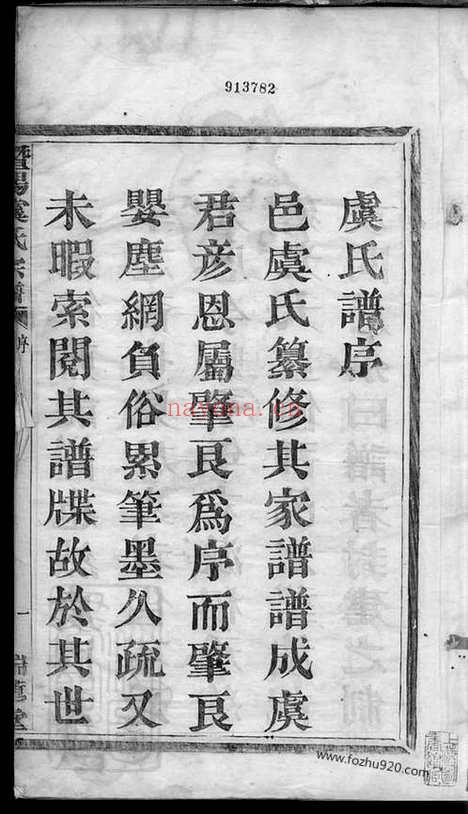 913782
虞氏譜序
邑虞氏纂修其家譜譜成虞
君彦恩屬肇艮為序而肇艮
嬰塵網負俗累筆墨久疏又
未暇索閱其譜牒故於其世
暨陽虞氏宗譜
序
一
nayona.cn
www.fozhu920.com